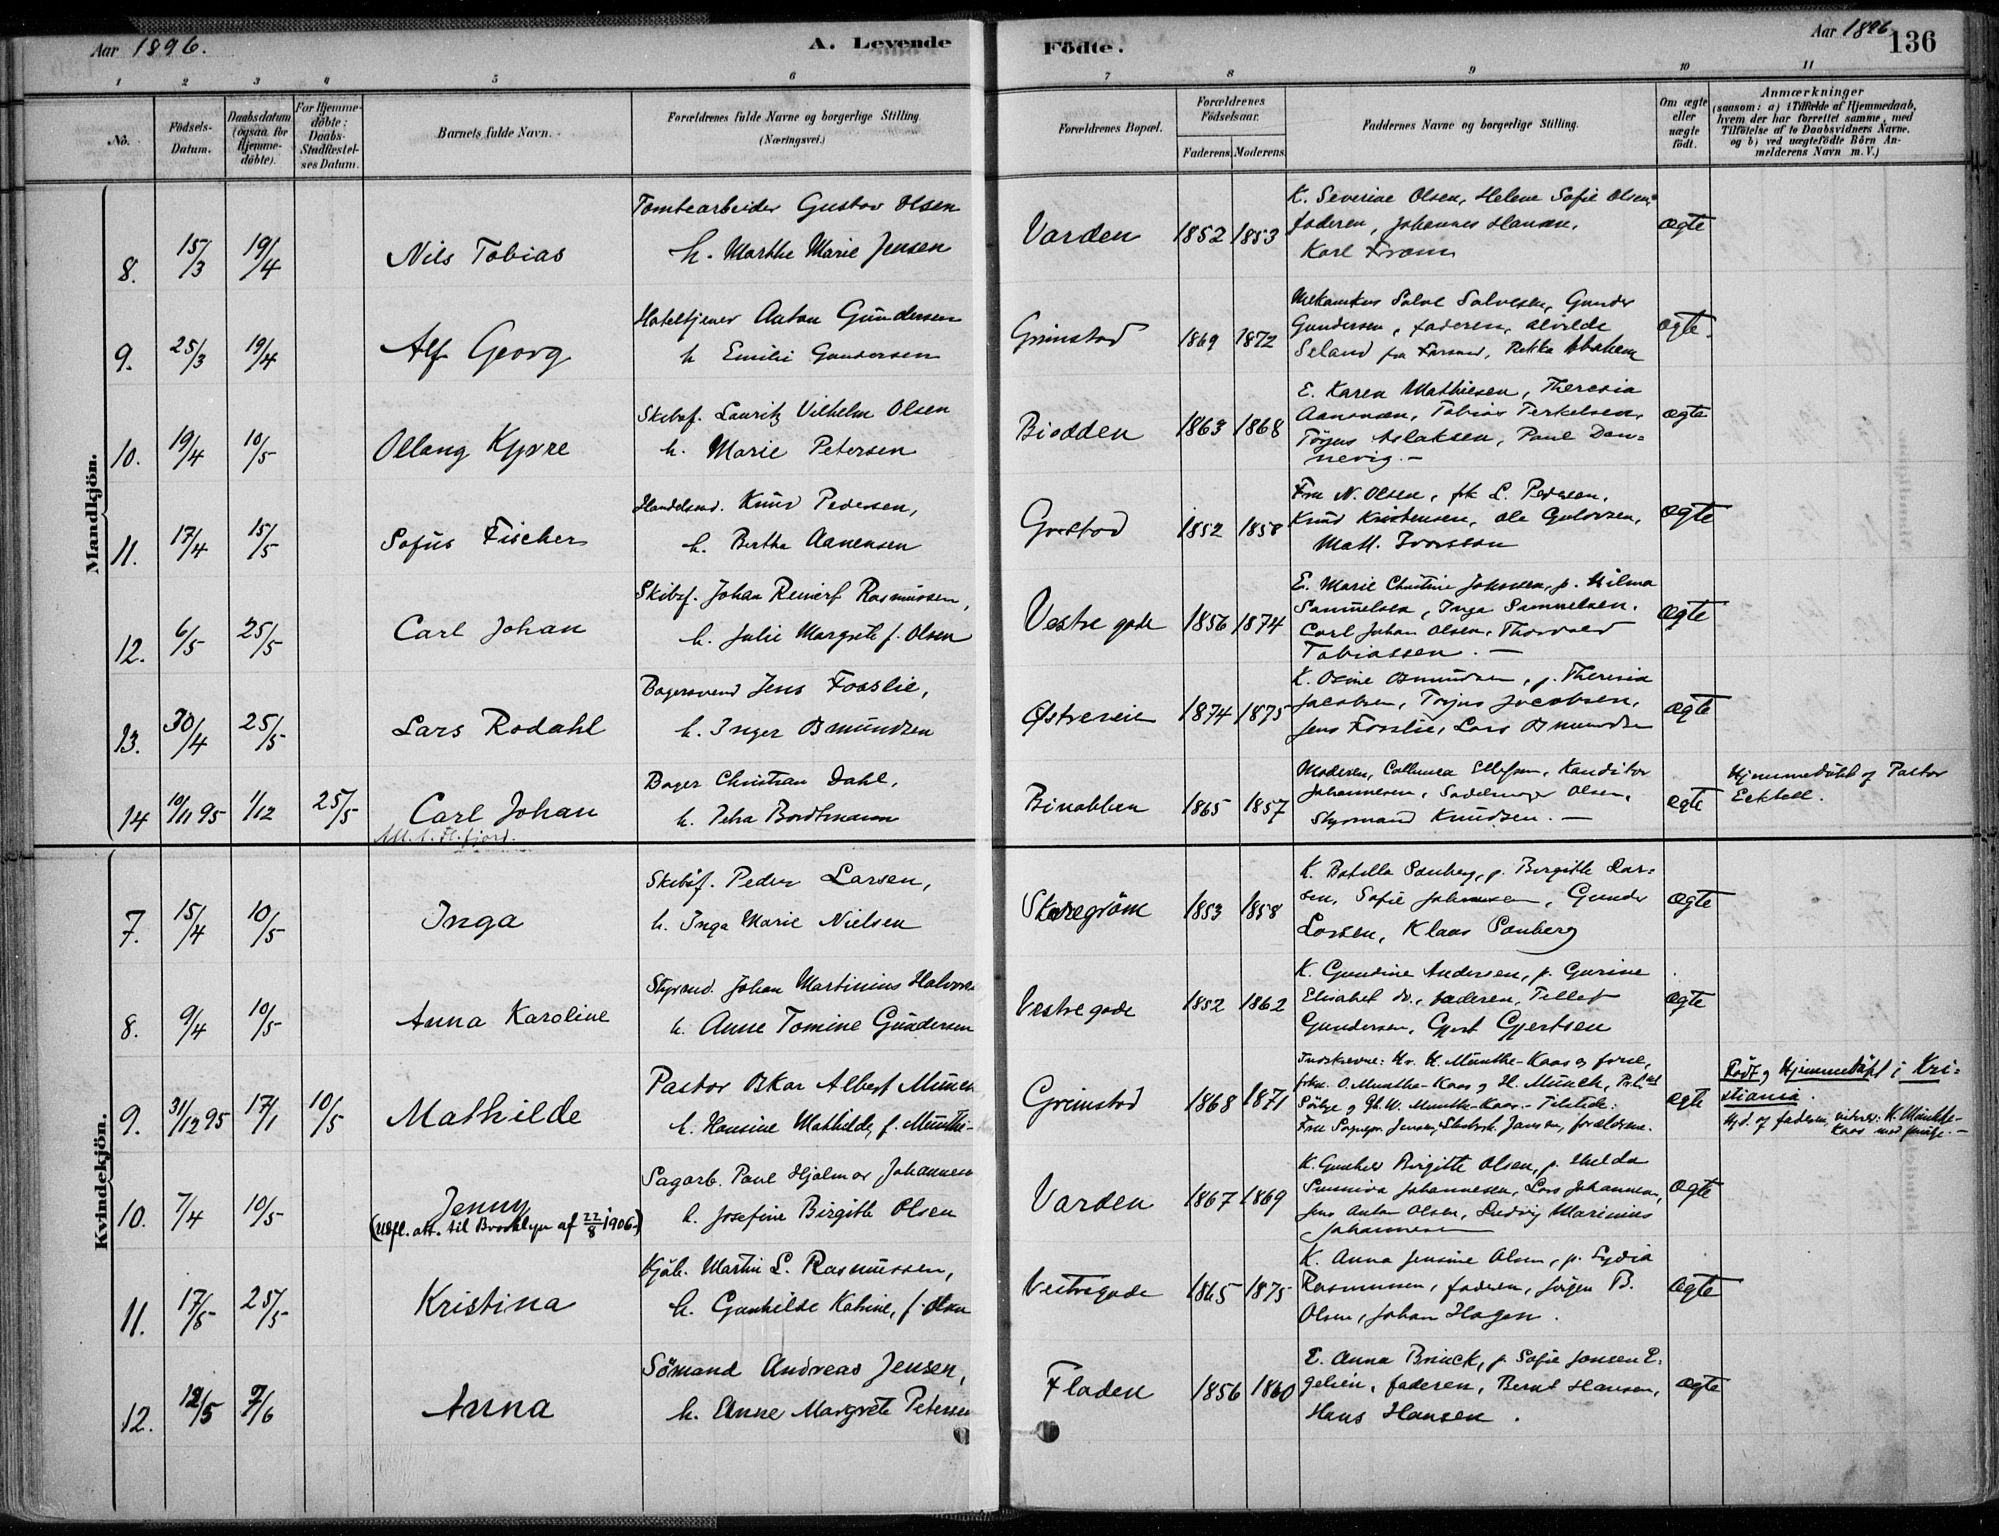 Aar 1896.
A. Levende
Födte.
Aar 1896
136
1 2 3 4 5 6 7 8 9 10 11
No.
Födsels-Datum.
Daabsdatum (ogsaa for Hjemme-döbte).
For Hjemme-döbte: Daabs-Stadfæstel-ses Datum.
Barnets fulde Navn.
Forældrenes fulde Navne og borgerlige Stilling. (Næringsvei.)
Forældrenes Bopæl.
Forældrenes Födselsaar.
Faderens. Moderens.
Faddernes Navne og borgerlige Stilling.
Om ægte eller uægte födt.
Anmærkninger
(saasom: a) i Tilfælde af Hjemmedaab,
hvem der har forrettet samme, med
Tilföielse af to Daabsvidners Navne.
og b) ved uægtefödte Börn An-
melderens Navn m. V.)
Mandkjön.
Tomtearbeider Gustav Olsen
8. 15/3 19/4 Nils Tobias h. Marthe Marie Jensen
Varden 1852 1853
K. Severine Olsen, Helene Sofie Olsen,
faderen, Johannes Hansen,
Karl Fram
ægte
Hoteltjener Anton Gundersen
9. 25/3 19/4 Alf Georg h. Emilie Gundersen
Grimstad 1869 1872
Mekanikus Salve Salvesen, Gunder
Gundersen, faderen, Alvilde
Seland fra Farsund, Rekka Abraham
ægte.
Skibsf. Lauritz Vilhelm Olsen
10. 19/4 10/5 h. Marie Petersen
Biodden 1863 1868
E. Karen Mathiesen, Theresia
Aanonsen, Tobias Terkelsen,
Törjus Aslaksen, Paul Dan-
nevig. —
ægte
Handelsmd. Knud Pedersen,
11. 17/4 15/5 Sofus Fischer h. Bertha Aanensen
1852 1858
Fru N. Olsen, frk L. Pedersen,
Knud Kristensen, Ole Gulovsen,
Math. Ivarsson
ægte
Skibsf. Johan Reinert Rasmussen,
12. 6/5 25/5 Carl Johan h. Julie Margrete f. Olsen
Vestre gade 1856 1874
E. Marie Christine Johnsen, p. Hilma
Samuelsen, Inga Samuelsen.
Carl Johan Olsen, Thorvald
Tobiassen. —
ægte
Bagersvend Jens Fosslie,
13. 30/4 25/5 Lars Rodahl h. Inger Osmundsen
Østreveien 1874 1875
K. Osine Osmundsen, p. Theresia
Jacobsen, Terjus Jacobsen,
Jens Fosslie, Lars Osmundsen
ægte
Bager Christian Dahl,
14 10/11 95 1/12 25/5 Carl Johan h. Petra Bordtmann
Binabben 1865 1857
Moderen, Cathinca Ellefsen, Konditor
Johannesen, Sadelmager Olsen,
Styrmand Knudsen. —
ægte
Hjemmedöbt af Pastor
Eckhell.
Kvindekjön.
Skibsf. Peder Larsen,
7. 15/4 10/5 Inga h. Inga Marie Nielsen
Skaregröm 1853 1858
K. Botilla Sanberg, p. Birgitte Lar-
sen, Sofie Johansen, Gunder
Larsen, Klaas Sanberg
ægte
Styrmd. Johan Martinius Halvorsen
8. 9/4 10/5 Anna Karoline h. Anne Tomine Gundersen
Vestre gade 1852 1862
K. Gundine Andersen, p. Gurine
Elisabet do., faderen, Tellef
Gundersen, Gjert Gjertsen
ægte
Pastor Oskar Albert Münch
9. 31/12 95 17/1 10/5 Mathilde h. Hansine Mathilde, f. Munthe-
Grimstad 1868 1871
Indskrevne: Hr. H. Munthe-Kaas og frue,
frkn. O. Munthe-Kaas og H. Münch,
og Munthe-Kaas. Tilstede:
Fru Sogner. Jensen, Jansen, forældrene.
ægte
Födt og Hjemmedöbt i Kri-
stiania.
Hjd. af faderen, vidner: K. Munthe-
Kaas med frue. —
Sagarb. Paul Hjalmar Johannesen
10. 7/4 10/5 Jenny h. Josefine Birgitte Olsen
(Udfl. att. til Brooklyn af 22/8 1906.)
Varden 1867 1869
K. Gunhild Birgitte Olsen, p. Hulda
Sunniva Johannesen, Lars Johannesen,
Jens Anton Olsen, Ludvig Marinius
Johannesen
ægte
Kjöb. Martin L. Rasmussen,
11. 17/5 25/5 Kristina h. Gunhilde Katrine, f. Olsen
Vestregade 1865 1875
K. Anna Jensine Olsen, p. Lydia
Rasmussen, faderen, Jörgen B.
Olsen, Johan Hagen.
ægte
Sömand Andreas Jensen,
12. 12/5 7/6 Anna h. Anne Margrete Petersen
Fladen 1856 1860
E. Anna Brinck, p. Sofie Jonsen E-
gelien, faderen, Bernt Hansen,
Hans Hansen.
ægte